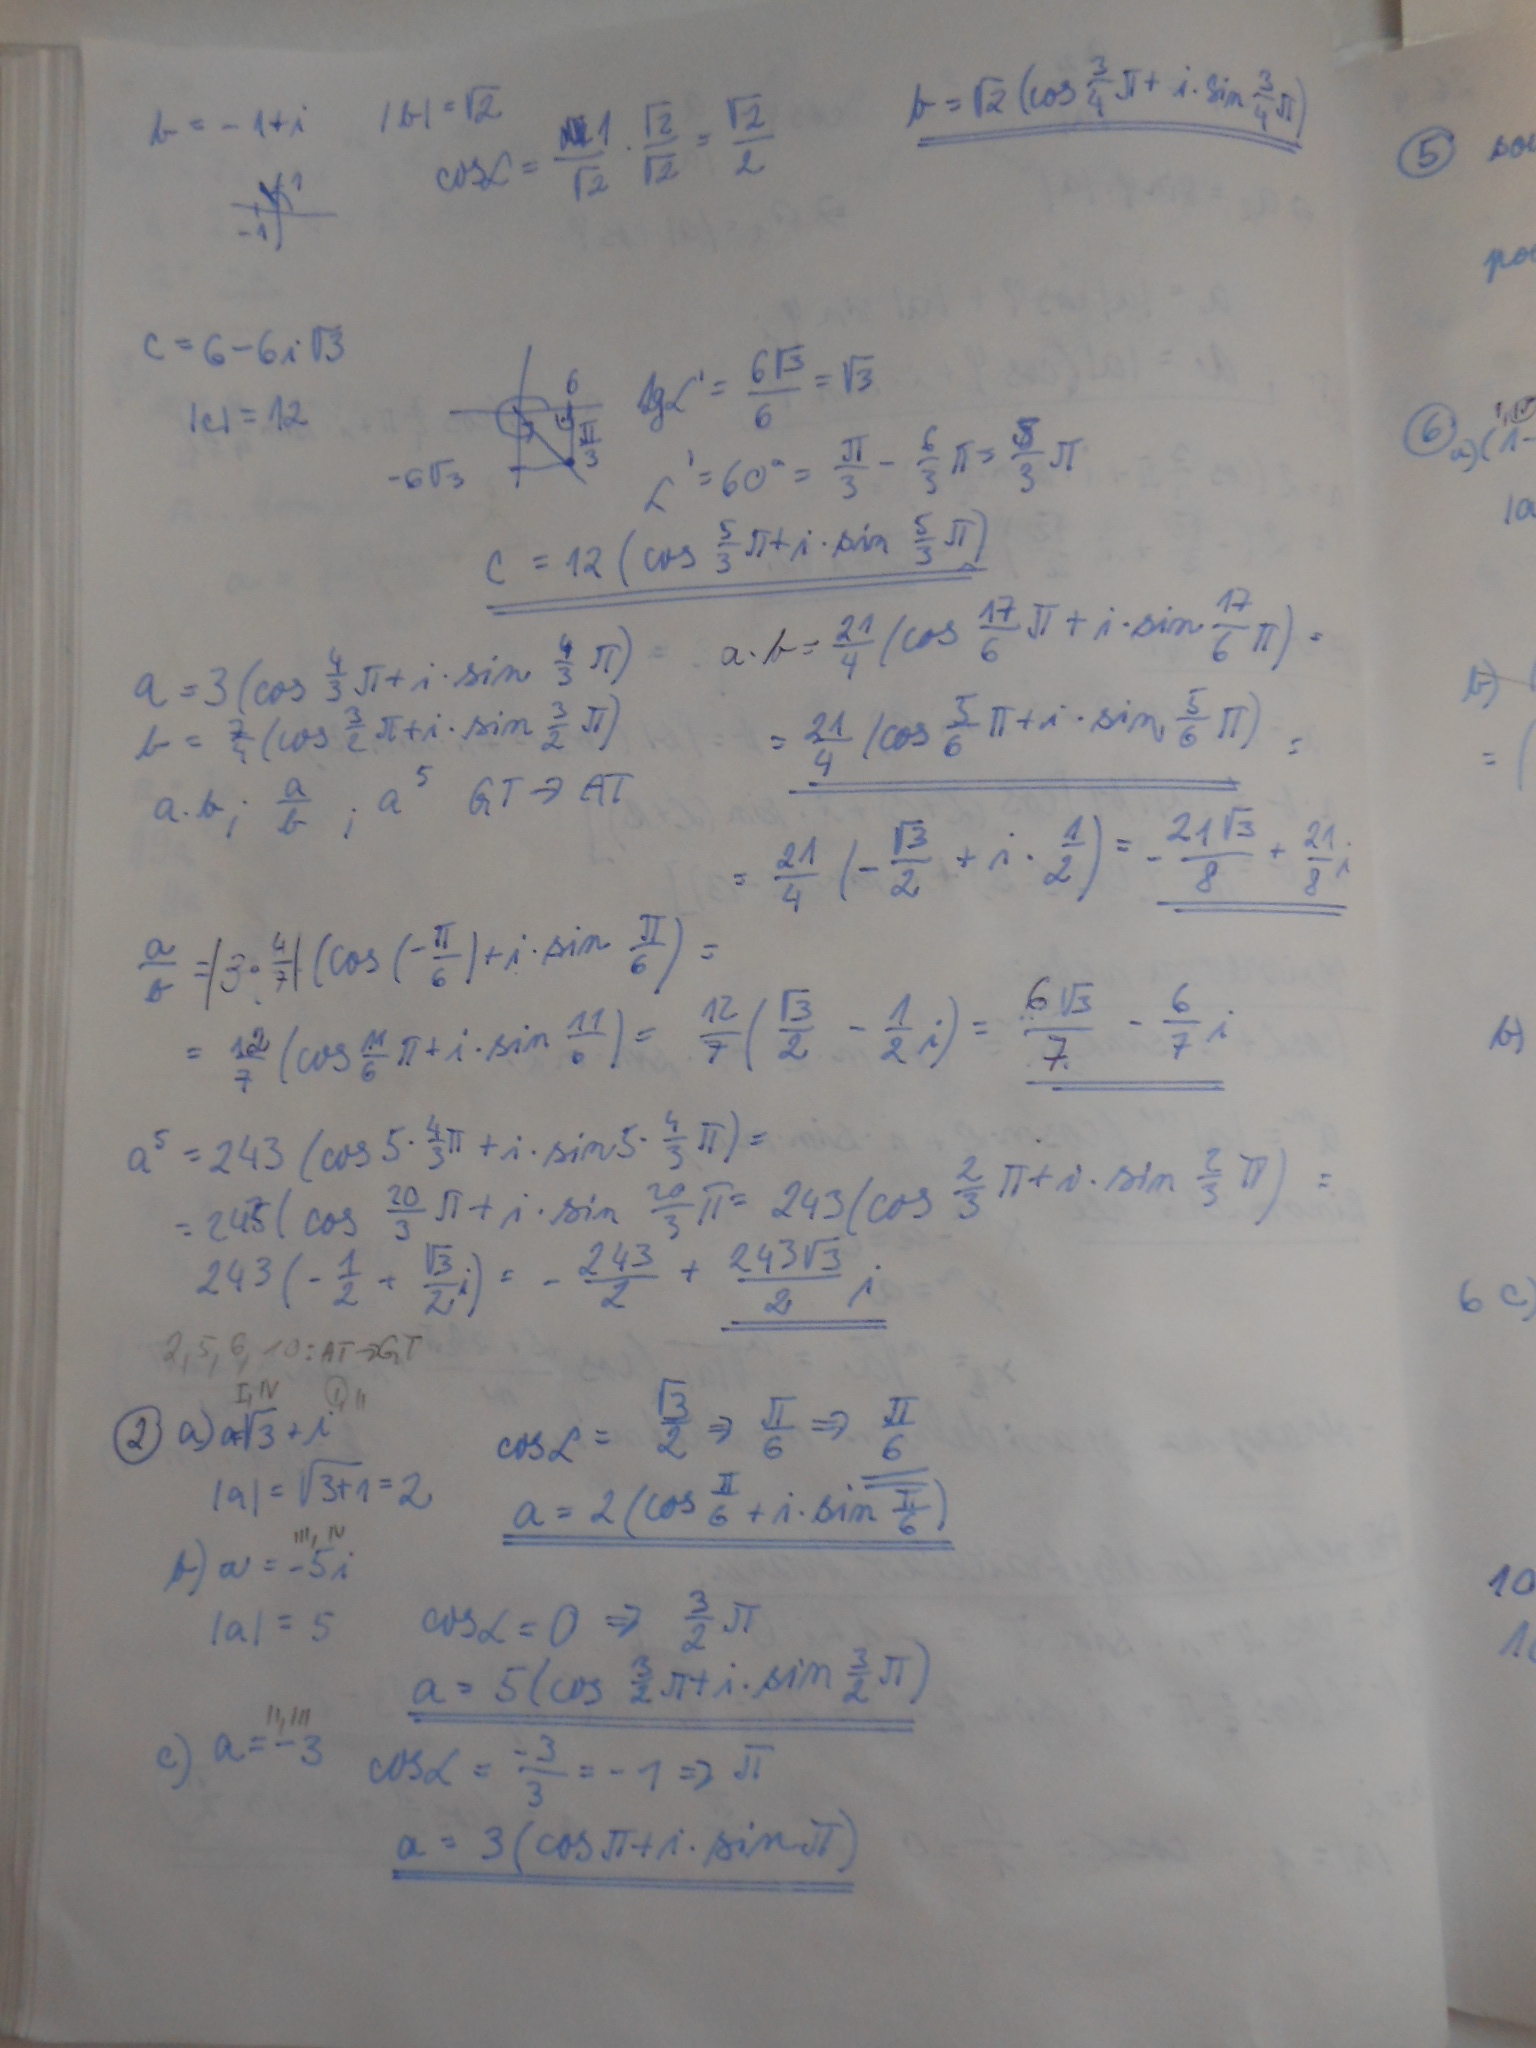 b = -1+i |b| = √2 b = √2 (cos 3/4 π + i · sin 3/4 π)
cos α = 1/√2 · √2/√2 = √2/2
1
-1
c = 6 - 6i√3
|c| = 12
6
-6√3
π/3
tg α' = 6√3/6 = √3
α' = 60° = π/3 - 6/3 π = 5/3 π
c = 12 (cos 5/3 π + i · sin 5/3 π)
a = 3 (cos 4/3 π + i · sin 4/3 π)
b = 7/4 (cos 3/2 π + i · sin 3/2 π)
a·b ; a/b ; a⁵ GT → AT
a·b = 21/4 (cos 17/6 π + i · sin 17/6 π) =
= 21/4 (cos 5/6 π + i · sin 5/6 π) =
= 21/4 (-√3/2 + i · 1/2) = -21√3/8 + 21/8 i
a/b = |3 · 4/7| (cos (-π/6) + i · sin π/6) =
= 12/7 (cos 11/6 π + i · sin 11/6) = 12/7 (√3/2 - 1/2 i) = 6√3/7 - 6/7 i
a⁵ = 243 (cos 5 · 4/3 π + i · sin 5 · 4/3 π) =
= 243 (cos 20/3 π + i · sin 20/3 π = 243 (cos 2/3 π + i · sin 2/3 π) =
243 (-1/2 + √3/2 i) = -243/2 + 243√3/2 i
2, 5, 6, 10 : AT → GT
I, IV I, II
② a) a=√3 + i cos α = √3/2 ⇒ π/6 ⇒ π/6
|a| = √3+1 = 2 a = 2 (cos π/6 + i · sin π/6)
III, IV
b) a = -5i
|a| = 5 cos α = 0 ⇒ 3/2 π
a = 5 (cos 3/2 π + i · sin 3/2 π)
II, III
c) a = -3 cos α = -3/3 = -1 ⇒ π
a = 3 (cos π + i · sin π)
⑤
⑥ a) (1-
|a
b)
= (
b)
6 c)
10